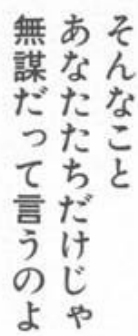 そんなこと
あなたたちだけじゃ
無謀だって言うのよ